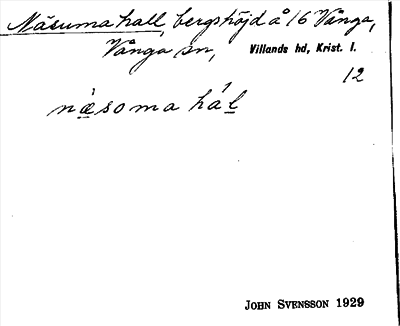 Näsuma hall, bergshöjd å 16 Vånga,
Vånga sn, Villands hd, Krist. l.
12
næ̀soma hál
JOHN SVENSSON 1929